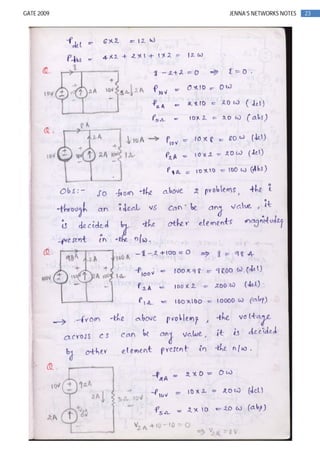 GATE 2009
JENNA'S NETWORKS NOTES 23
Pdel = 6×2 = 12 W
Pabs = 4×2 + 2×1 + 1×2 = 12 W
Q.
10V 2A 10V 2A
I - 2 + 2 = 0 ⇒ I = 0.
P10V = 0×10 = 0W
P2A = 2×10 = 20 W (del)
= 10×2 = 20 W (abs)
Q.
2A 10A
10V 2A 10V 1Ω
P10V = 10×8 = 80 W (del)
P2A = 10×2 = 20W (del)
P1Ω = 10×10 = 100 W (abs)
Obs:- So from the above 2 problems, the i
through an ideal vs can be any value, it
is decided by the other elements magnitudes
present in the n/w.
Q.
98A 2A 100A
100V 2A 100V 1Ω
-I - 2 + 100 = 0 ⇒ I = 98 A
P100V = 100×98 = 9800 W (del)
P2A = 100×2 = 200 W (del)
P1Ω = 100×100 = 10000 W (abs)
→ from the above problems, the voltage
across cs can be any value, it is decided
by other element present in the n/w.
Q.
10V 2A
2A 5Ω 10V
2A
P2A = 2×0 = 0W
P10V = 10×2 = 20W (del)
P5Ω = 2×10 = 20 W (abs)
V2A + 10 - 10 = 0